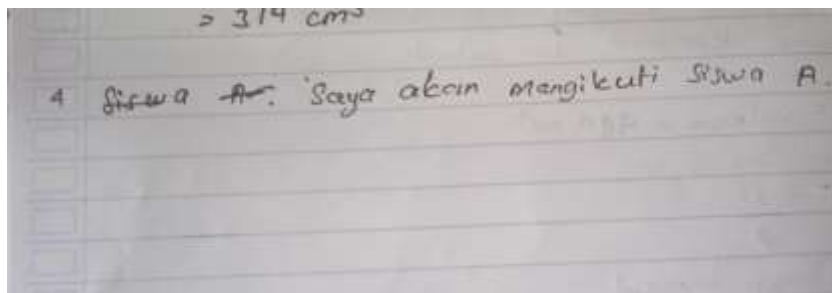 = 314 cm³
4 Siswa A. Saya akan mengikuti Siswa A.